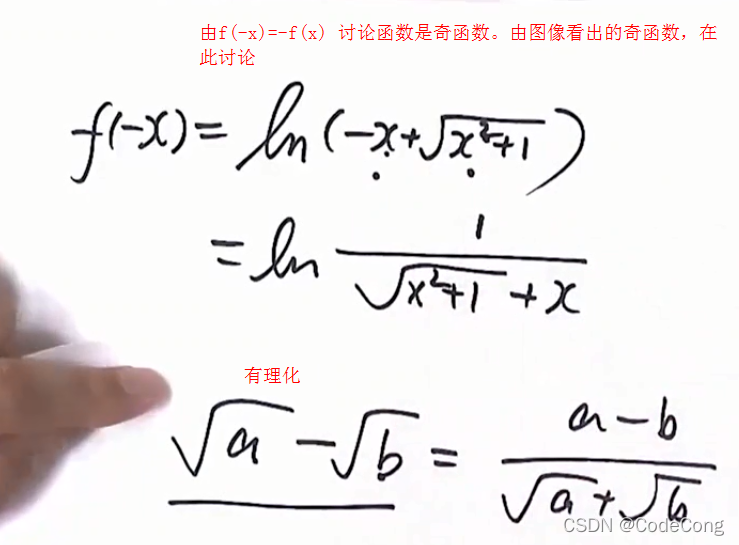 由f(-x)=-f(x) 讨论函数是奇函数。由图像看出的奇函数，在
此讨论
f(-x) = ln(-x+√(x²+1))
= ln 1/(√(x²+1) + x)
有理化
√a - √b = (a-b)/(√a+√b)
CSDN @CodeCong